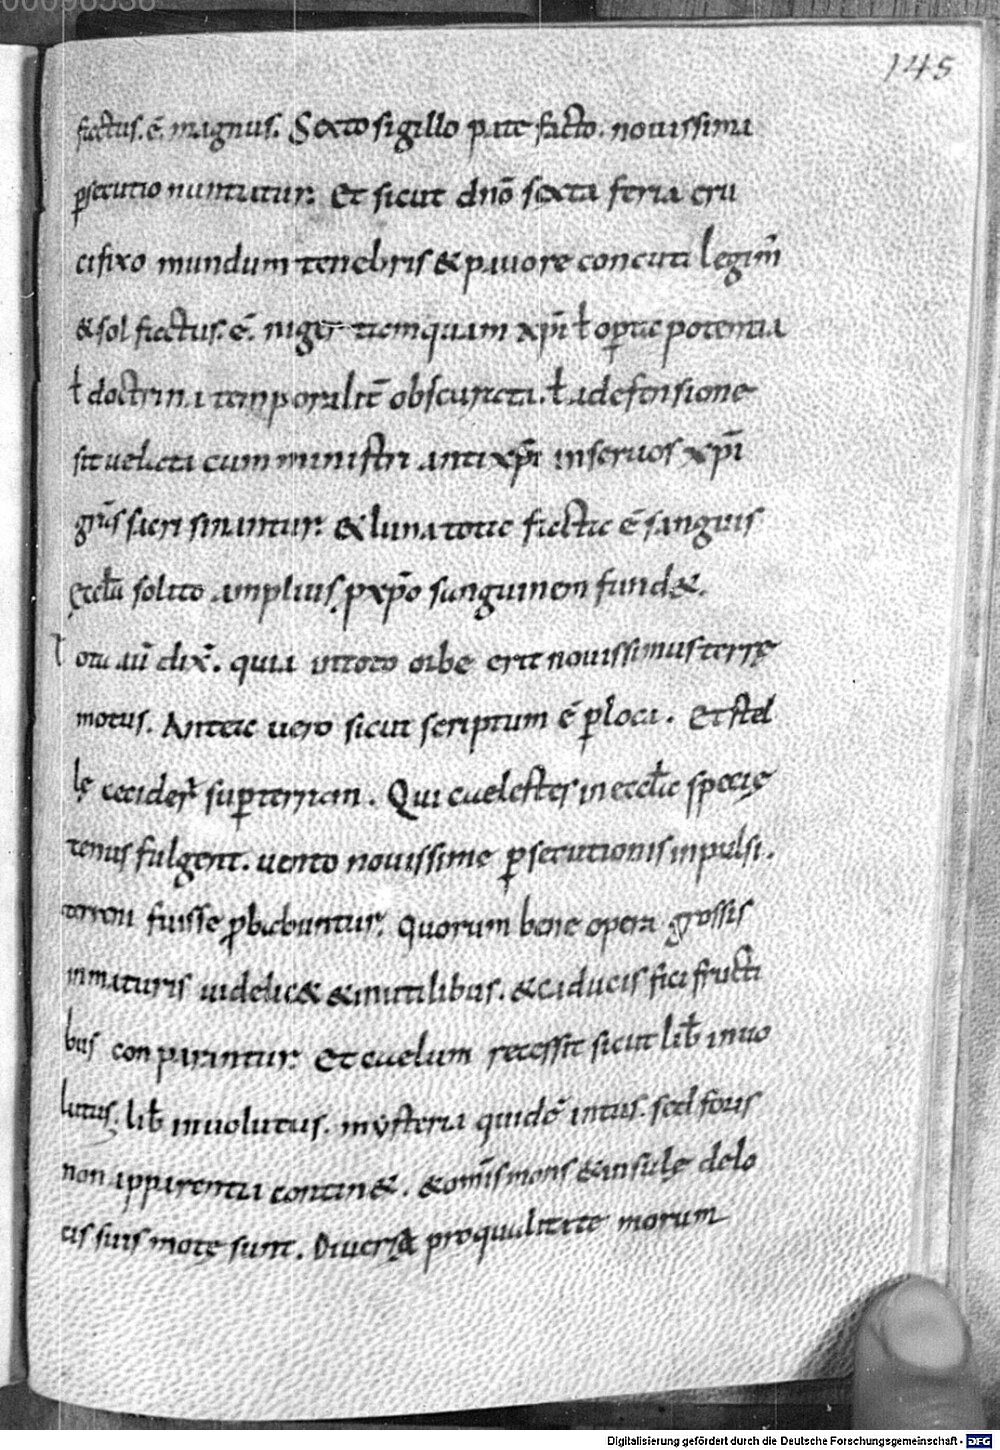 00096538
145
factus. ē. magnus. Sexto sigillo pate facto. nouissima
ꝑsecutio nuntiatur. Et sicut dnō sexta feria cru
cifixo mundum tenebris & pauore concuti legim̄
& sol factus. ē. niger tamquam xp̄i ƚ operta potentia
ƚ doctrina temporalit̄ obscurata. ƚ a defensione
sit uelata cum ministri antixp̄i in seruos xp̄i
grās saeri sinantur. & luna tota facta ē sanguis
ęccƚa solito amplius, ꝓ xp̄o sanguinem fund&.
Tota aū dix̄. quia in toto orbe erit nouissimus terrę
motus. Antea uero sicut scriptum ē ꝑ loca. Et stel
lę cecider̄ suꝑ terram. Qui caelestes in ecclā specię
tenus fulgent. uento nouissime ꝑsecutionis inpulsi.
terreni fuisse ꝓbabuntur. Quorum bene opera grossis
inmaturis uidelic& & inutilibus. & caducis fici fructi
bus conparantur. Et caelum recessit sicut lib̄ inuo
lutus. lib̄ inuolutus. mysteria quidē intus. sed foris
non apparentia contin&. & om̄is mons & insulę de lo
cis suis motę sunt. Diuersa pro qualitate morum
Digitalisierung gefördert durch die Deutsche Forschungsgemeinschaft - DFG